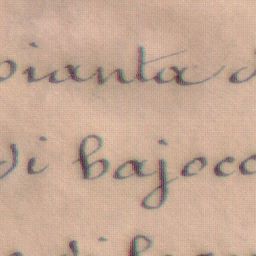 pianta d
di bajocc